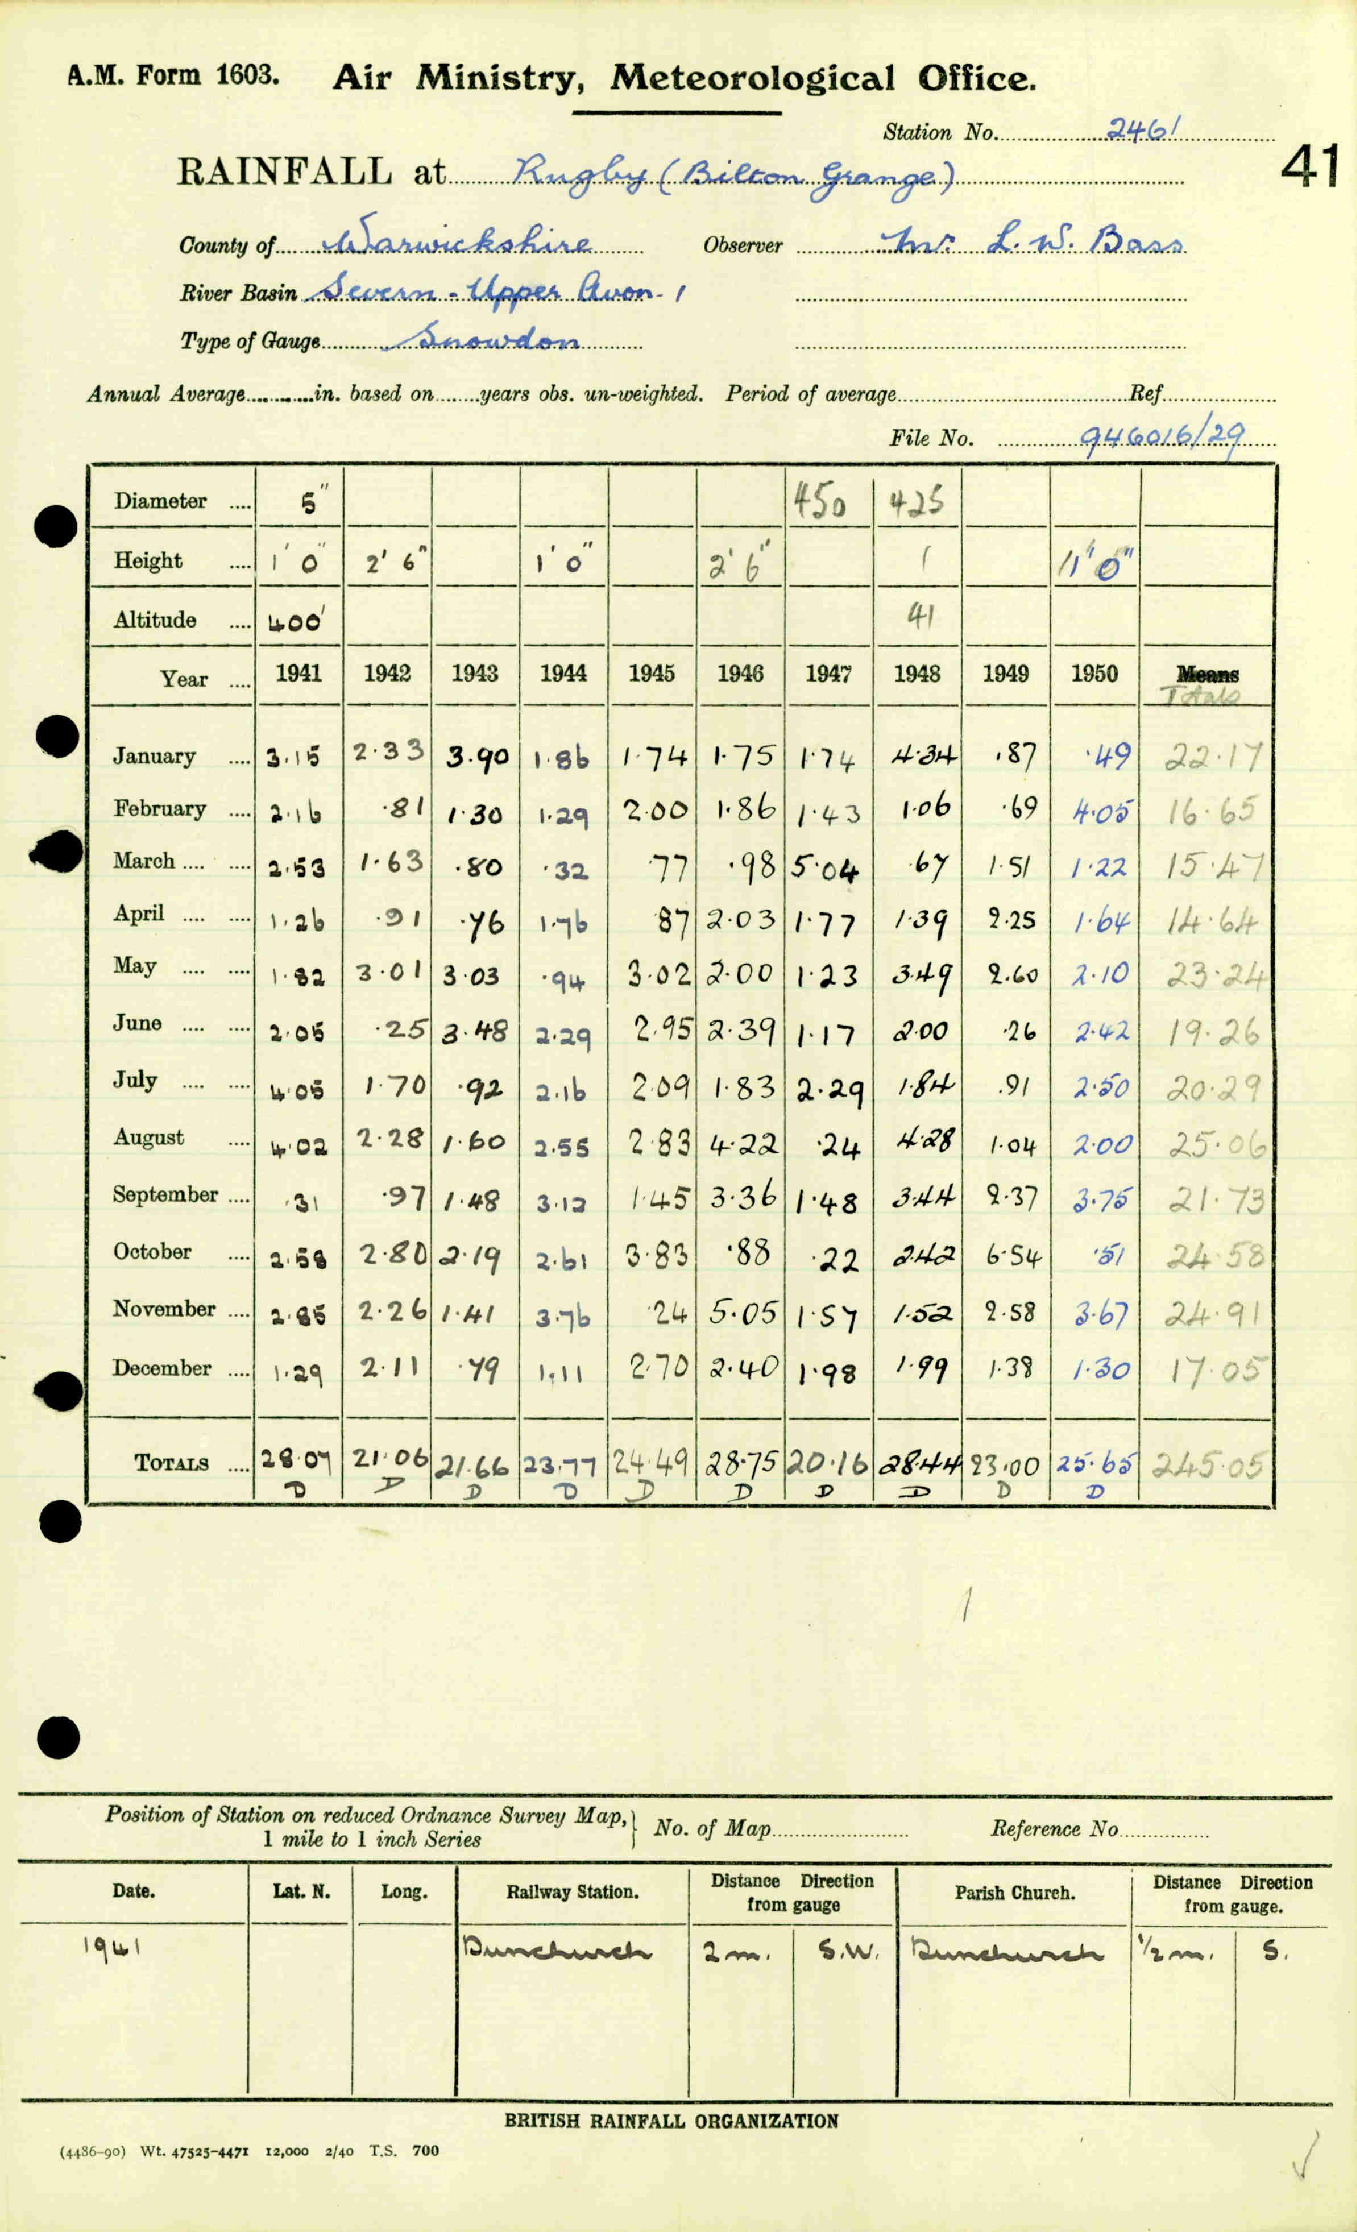 A.M. Form 1603. Air Ministry, Meteorological Office.
Station No. 2461
41
RAINFALL at Rugby (Bilton Grange)
County of Warwickshire Observer Mr. L. W. Bass
River Basin Severn - Upper Avon - 1
Type of Gauge Snowdon
Annual Average............in. based on........years obs. un-weighted. Period of average........ Ref........
File No. 946016/29
Diameter .... 5" 450 425
Height .... 1' 0" 2' 6" 1' 0" 2' 6" 1 1' 0"
Altitude .... 400' 41
Year .... 1941 1942 1943 1944 1945 1946 1947 1948 1949 1950 Means
Totals
January .... 3.15 2.33 3.90 1.86 1.74 1.75 1.74 4.34 .87 .49 22.17
February .... 2.16 .81 1.30 1.29 2.00 1.86 1.43 1.06 .69 4.05 16.65
March .... .... 2.53 1.63 .80 .32 .77 .98 5.04 .67 1.51 1.22 15.47
April .... .... 1.26 .91 .76 1.76 .87 2.03 1.77 1.39 2.25 1.64 14.64
May .... .... 1.82 3.01 3.03 .94 3.02 2.00 1.23 3.49 2.60 2.10 23.24
June .... .... 2.05 .25 3.48 2.29 2.95 2.39 1.17 2.00 .26 2.42 19.26
July .... .... 4.05 1.70 .92 2.16 2.09 1.83 2.29 1.84 .91 2.50 20.29
August .... 4.02 2.28 1.60 2.55 2.83 4.22 .24 4.28 1.04 2.00 25.06
September .... .31 .97 1.48 3.12 1.45 3.36 1.48 3.44 2.37 3.75 21.73
October .... 2.58 2.80 2.19 2.61 3.83 .88 .22 2.42 6.54 .51 24.58
November .... 2.85 2.26 1.41 3.76 .24 5.05 1.57 1.52 2.58 3.67 24.91
December .... 1.29 2.11 .79 1.11 2.70 2.40 1.98 1.99 1.38 1.30 17.05
TOTALS .... 28.07 21.06 21.66 23.77 24.49 28.75 20.16 28.44 23.00 25.65 245.05
D D D D D D D D D D
Position of Station on reduced Ordnance Survey Map, } No. of Map........ Reference No........
1 mile to 1 inch Series
Date. Lat. N. Long. Railway Station. Distance Direction from gauge Parish Church. Distance Direction from gauge.
1941 Dunchurch 2 m. S.W. Dunchurch ½ m. S.
BRITISH RAINFALL ORGANIZATION
(4486-90) Wt. 47525-4471 12,000 2/40 T.S. 700